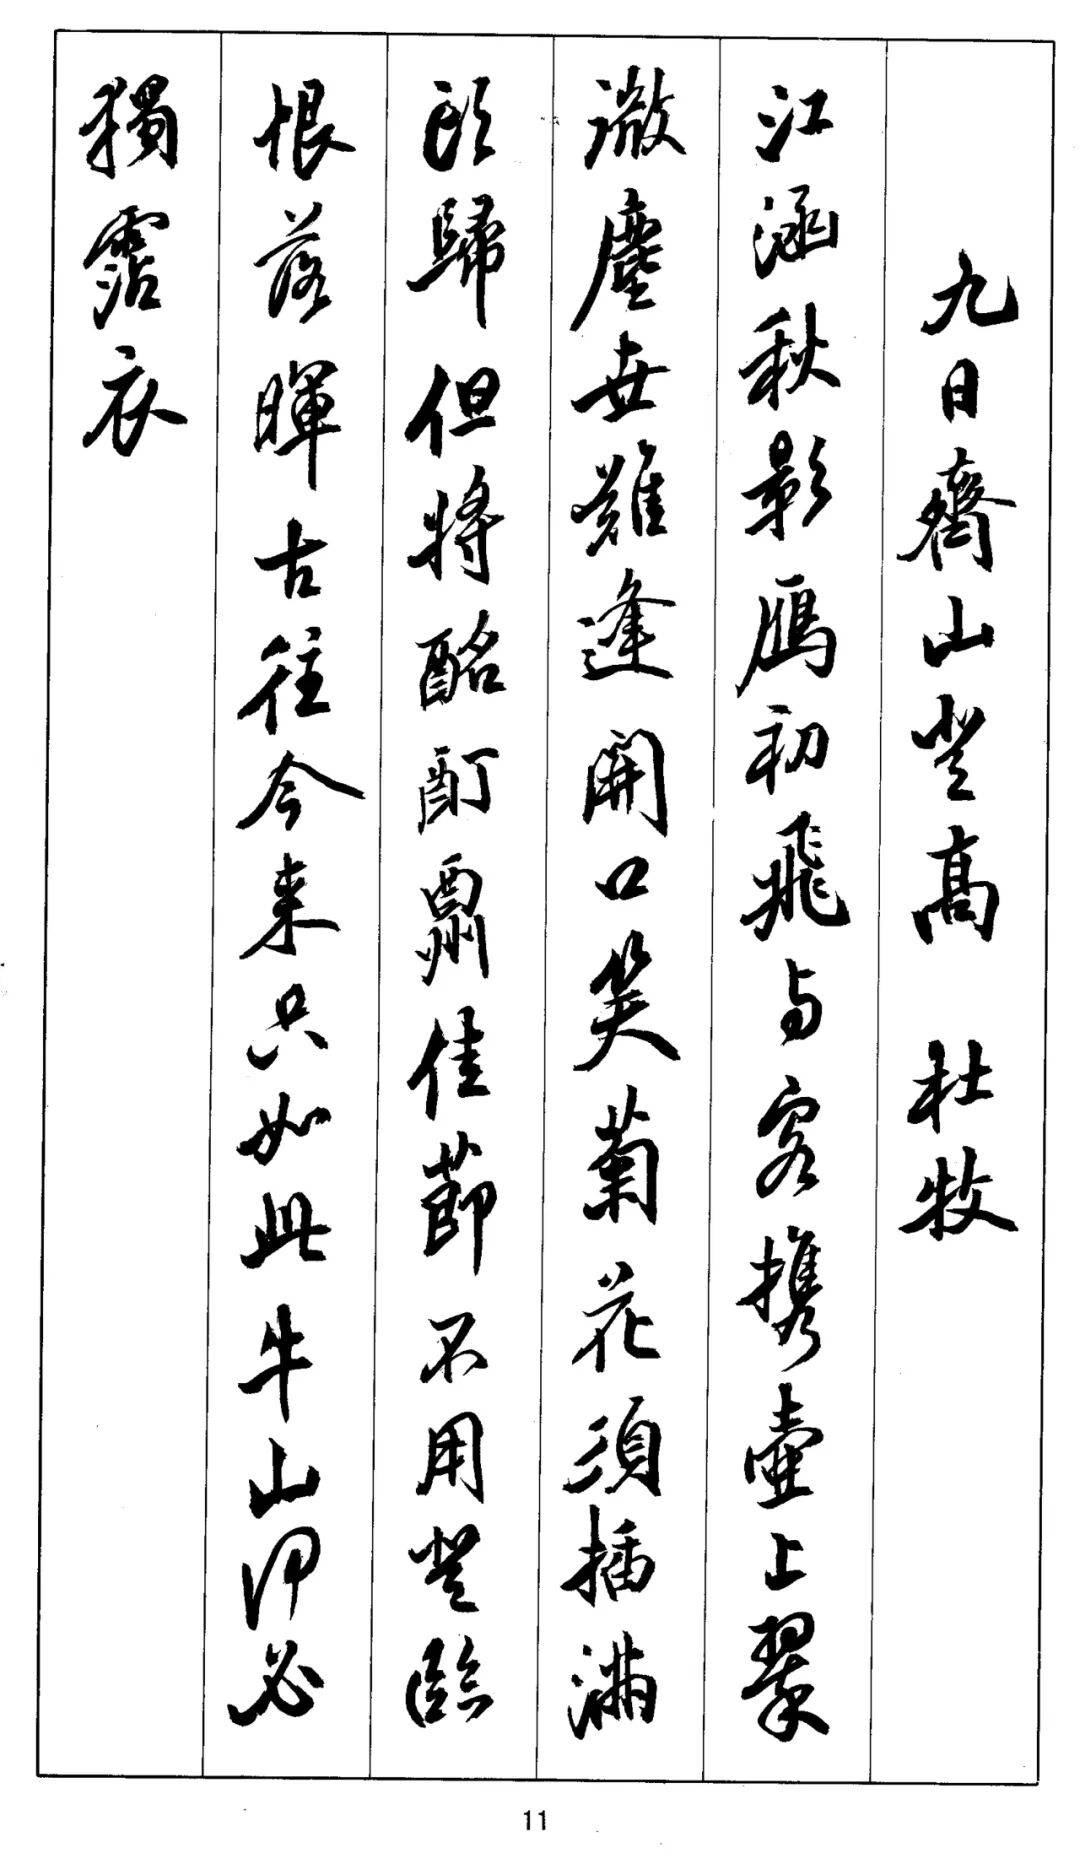 九日齊山登高 杜牧
江涵秋影鴈初飛与客携壺上翠
微塵世難逢開口笑菊花須插滿
頭歸但將酩酊酬佳節不用登臨
恨落暉古往今来只如此牛山何必
獨霑衣
11